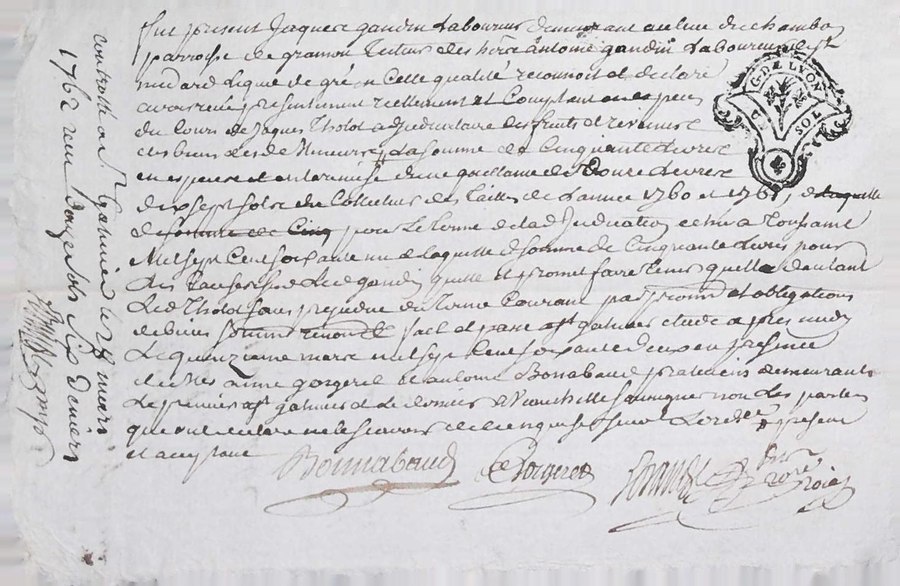 fut present Jaques gandin Laboureur demeurant au lieu de chambo
parroisse de gramon Tuteur des hoirs antoine gandin Laboureur de St
medard Lequel de gré en cette qualité reconnoit et declaré
avoir receu presentement reellement et Comptant en especes
du Cours de Jaques Tholot adjudicataire des fruits et revenus
des biens des mineurs La somme de Cinquante Livres
en espece et en la remise d'une quittance de Douze Livres
dix sept sols du Collecteur des Tailles de L'année 1760 et 1761, de laquelle
de somme de Cinq pour Le terme de lad judication echu a Toussaint
Mil sept Cent soixante un de laquelle somme de Cinquante Livres pour
Led gandin quitte et promet faire tenir quitte d'autant
Led Tholot sans prejudice du terme Courant par promes et obligations
de biens fait et passé a St galmier etude apres midy
Le quinzieme mars mil sept Cent soixante deux en presence
de Mes gorgeret et antoine Bonnabaud praticiens demeurants
Le premier a St galmier et signé non les parties
qui ont declaré ne le scavoir de ce enquis present
et acceptant
Bonnabaud Gorgeret
G. DE LYON
SOL
controllé a St galmier le 28 mars
1762 recu douze sols six deniers